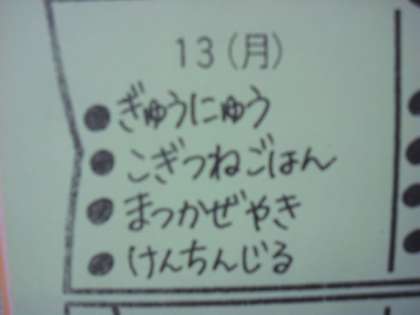 13(月)
●ぎゅうにゅう
●こぎつねごはん
●まつかぜやき
●けんちんじる